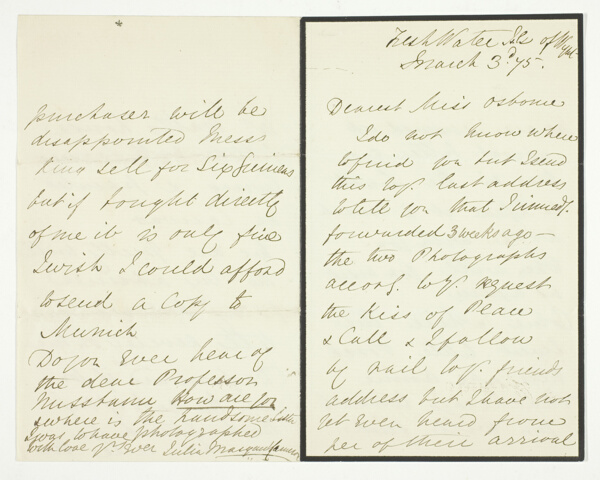 Fresh Water Isle of Wight
March 3d 75.
Dearest Miss Osborne
I do not know where
to find you but I send
this to yr. last address
to tell you that I immedy.
forwarded 3 weeks ago —
the two Photographs
accordg. to yr. request
the Kiss of Peace
& Call & I follow
by rail to yr. friends
address but I have not
yet even heard from
her of their arrival
*
purchaser will be
disappointed Messrs
King sell for Six Guineas
but if bought directly
of me it is only five
I wish I could afford
to send a Copy to
Munich
Do you Ever hear of
the dear Professor
Nussbaum How are you
& where is the handsome
I was to have photographed
With love Yrs Ever Julia Margaret Cameron